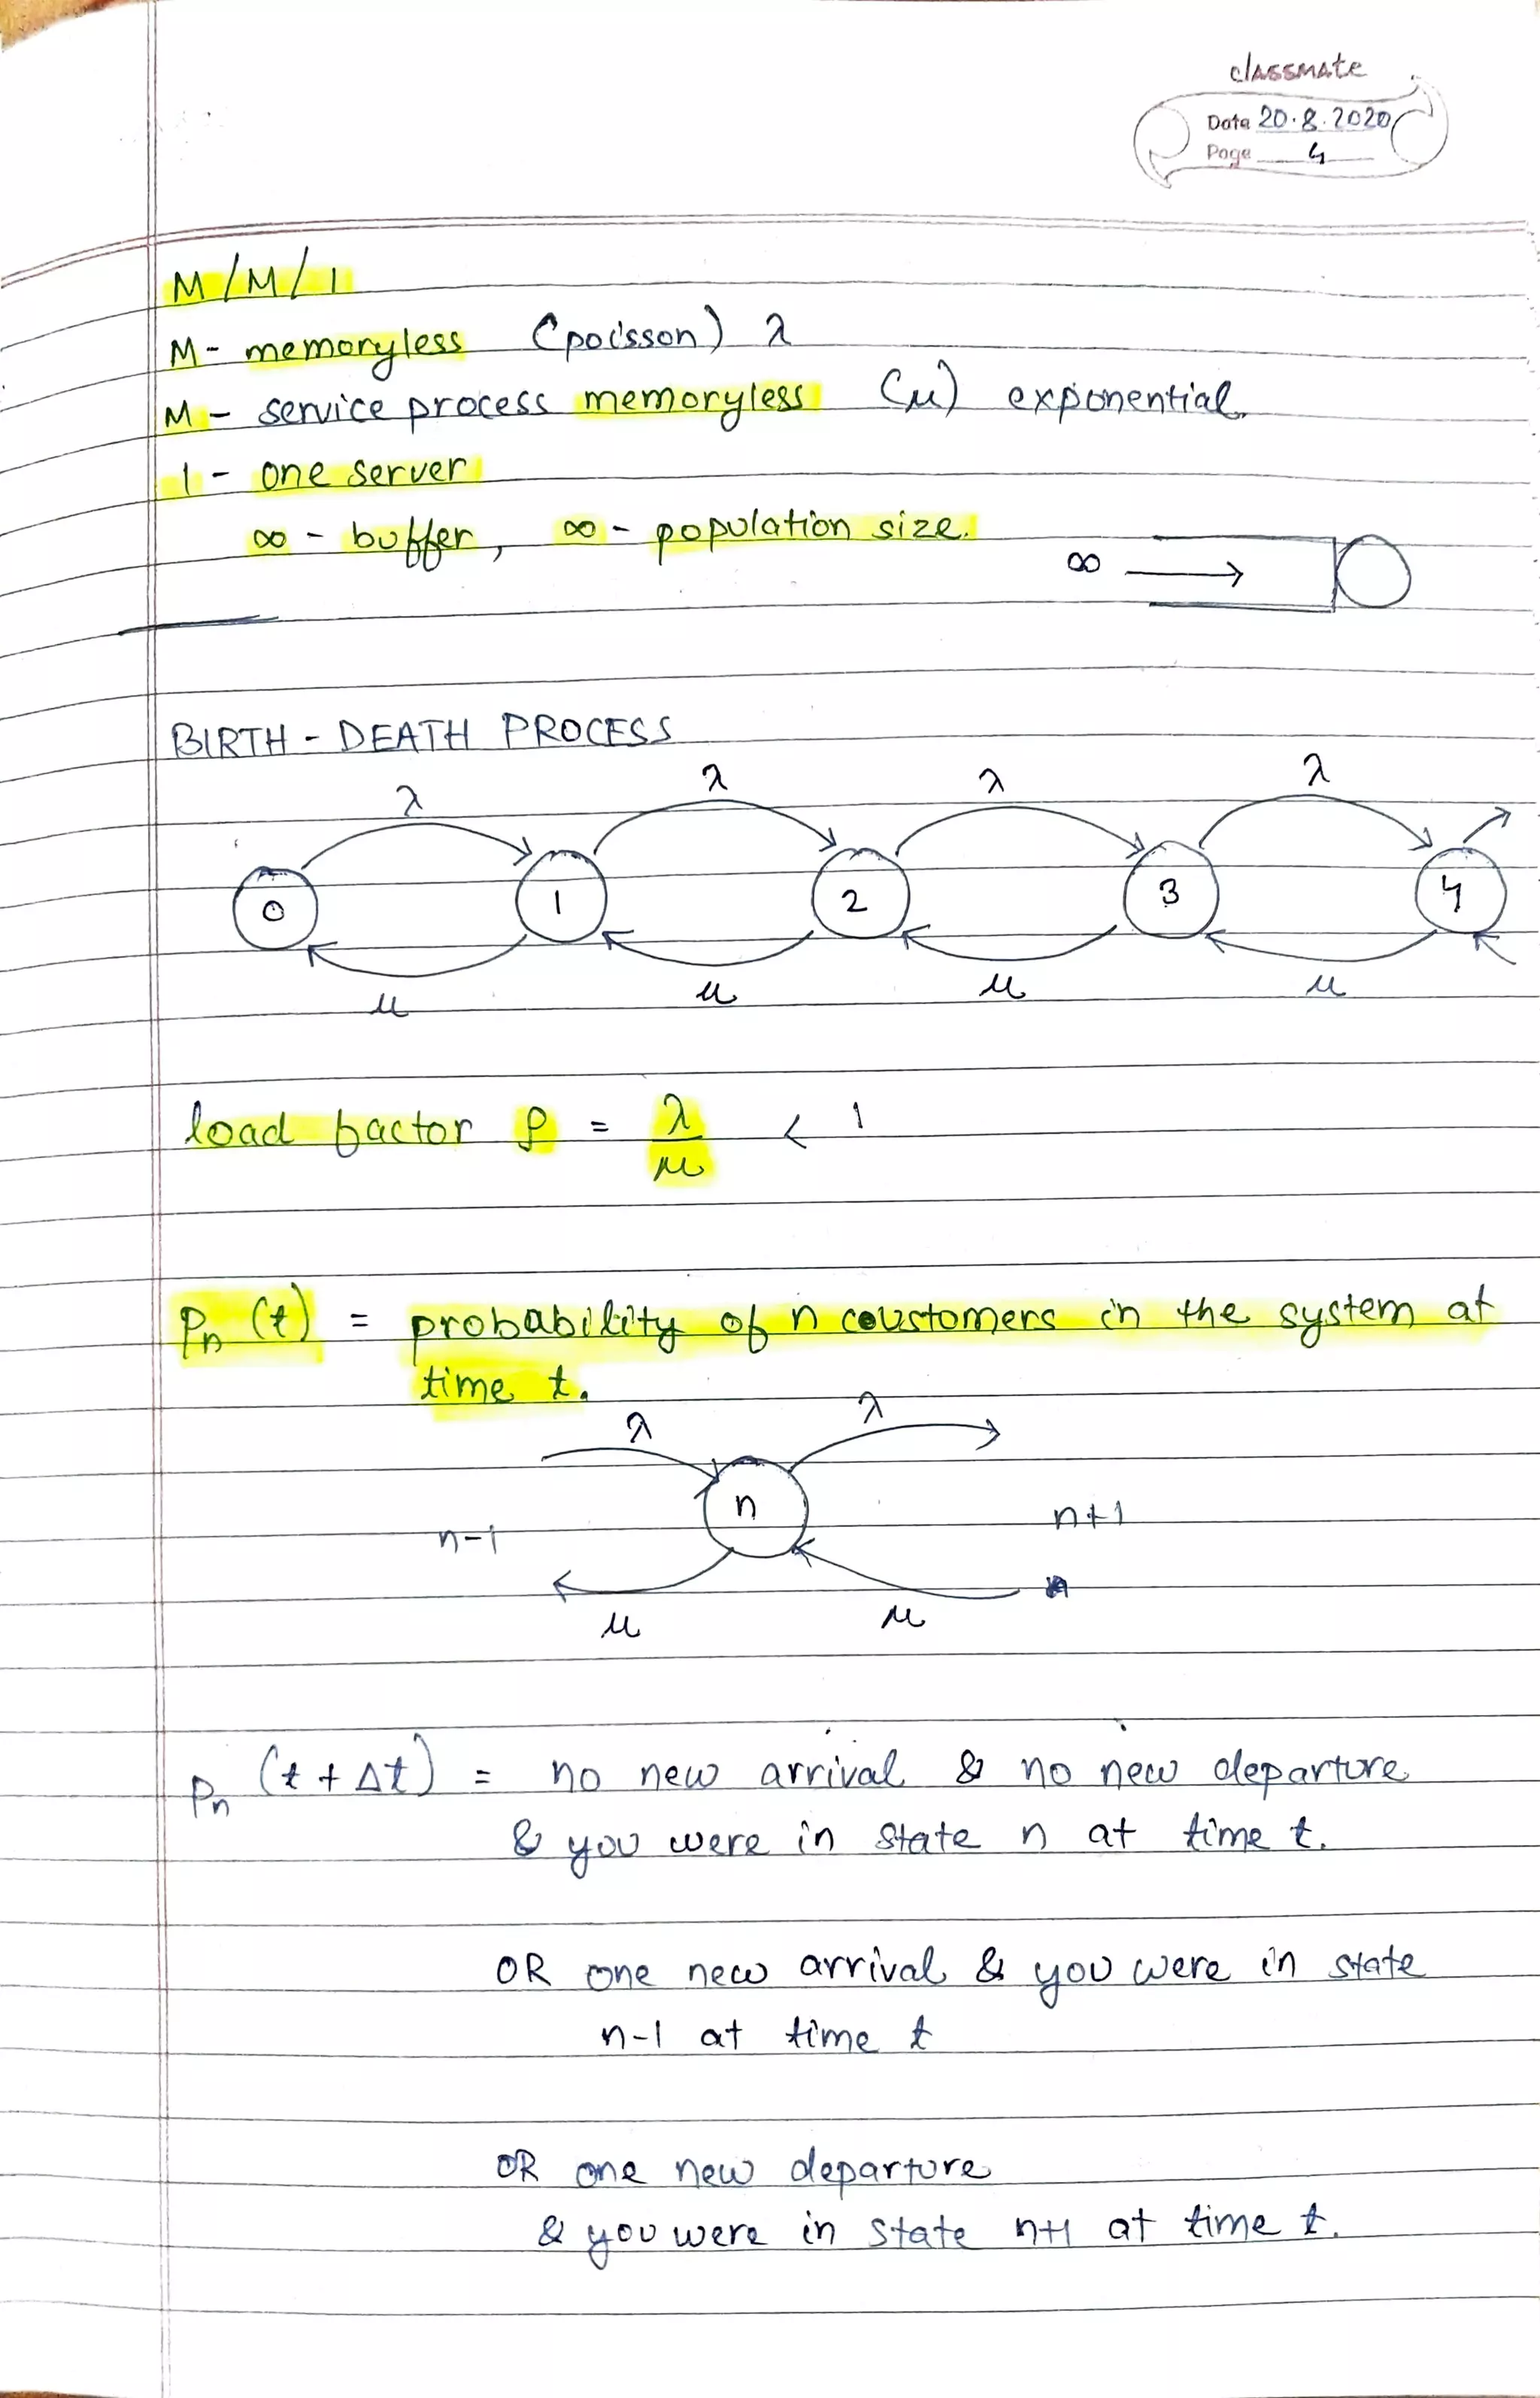 classmate
Date 20.8.2020
Page 4
M/M/1
M- memoryless (poisson) λ
M - service process memoryless (μ) exponential.
1 - one server
∞ - buffer, ∞ - population size.
∞
BIRTH - DEATH PROCESS
λ λ λ λ
0 1 2 3 4
μ μ μ μ
load factor ρ = λ/μ < 1
Pn (t) = probability of n coustomers in the system at
time t.
λ λ
n-1 n n+1
μ μ
Pn (t + Δt) = no new arrival & no new departure
& you were in state n at time t.
OR one new arrival & you were in state
n-1 at time t
OR one new departure
& you were in state n+1 at time t.